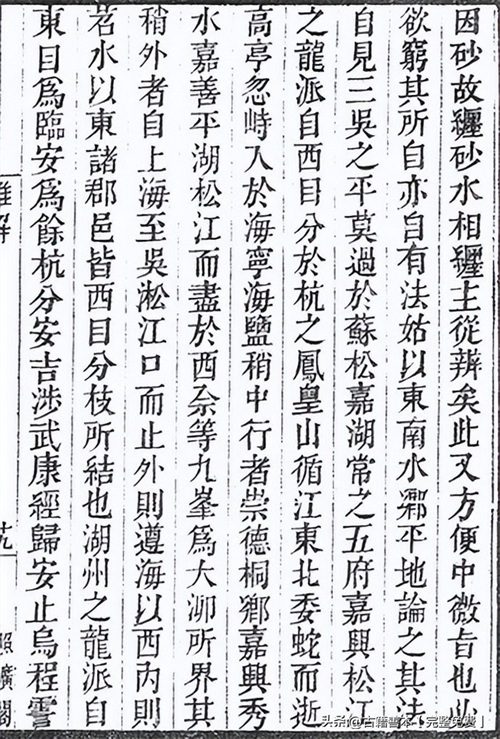 因砂故纒砂水相纒主從辨矣此又方便中微旨也必
欲窮其所自亦自有法姑以東南水鄉平地論之其法
自見三吳之平莫過於蘇松嘉湖常之五府嘉興松江
之龍派自西目分於杭之鳳皇山循江東北委蛇而逝
高亭忽峙入於海寧海鹽稍中行者崇德桐鄉嘉興秀
水嘉善平湖松江而盡於西佘等九峯爲大泖所界其
稍外者自上海至吳淞江口而止外則遵海以西內則
苕水以東諸郡邑皆西目分枝所結也湖州之龍派自
東目爲臨安爲餘杭分安吉涉武康經歸安止烏程霅
十九
照曠閣
头条@古籍書本「完整免費」